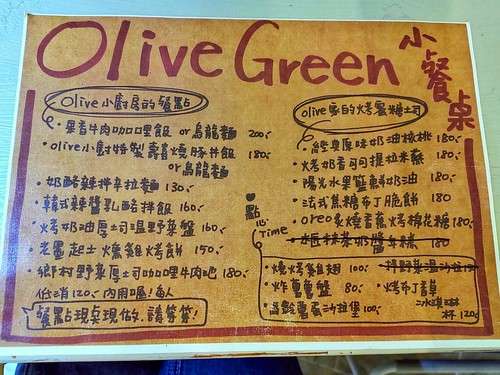 Olive Green
小餐桌
Olive小廚房的餐點
·果香牛肉咖哩飯 or 烏龍麵 200.
·olive小廚特製壽喜燒豚丼飯 180.
or烏龍麵
·奶酪辣拌辛拉麵 130.
·韓式辣醬乳酪拌飯 160.
·烤奶油厚土司溫野菜盤 160.
·老墨起士燻雞烤餅 150.
·鄉村野菜厚土司咖哩牛肉 180.
低消120. 內用喔！每人
餐點現点現做.請等等！
olive家的烤蜜糖土司
·經典原味奶油核桃 180.
·烤奶香可可提拉米蘇 180.
·陽光水果籃鮮奶油 180.
·法式焦糖布丁脆餅 180
·oreo炙燒香蕉烤棉花糖 180.
180
點心
Time
·燒烤雞翅 100.
·炸薯薯盤 80.
·馬鈴薯蛋沙拉堡 100.
·烤布丁
冰淇淋
杯 120.